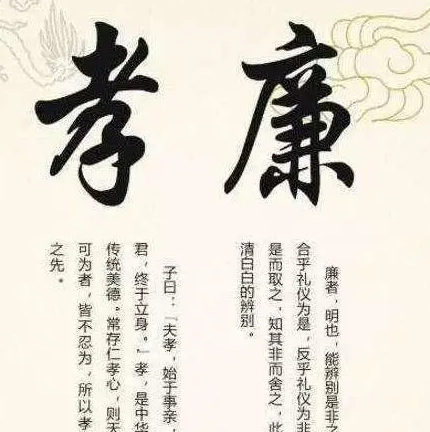 孝
廉
廉者，明也，能辨别是非之
合乎礼仪为是，反乎礼仪为非
是而取之，知其非而舍之，此
清白白的辨别。
子曰：「夫孝，始于事亲，
君，终于立身。」孝，是中华
传统美德。常存仁孝心，则天
可为者，皆不忍为，所以孝
之先。